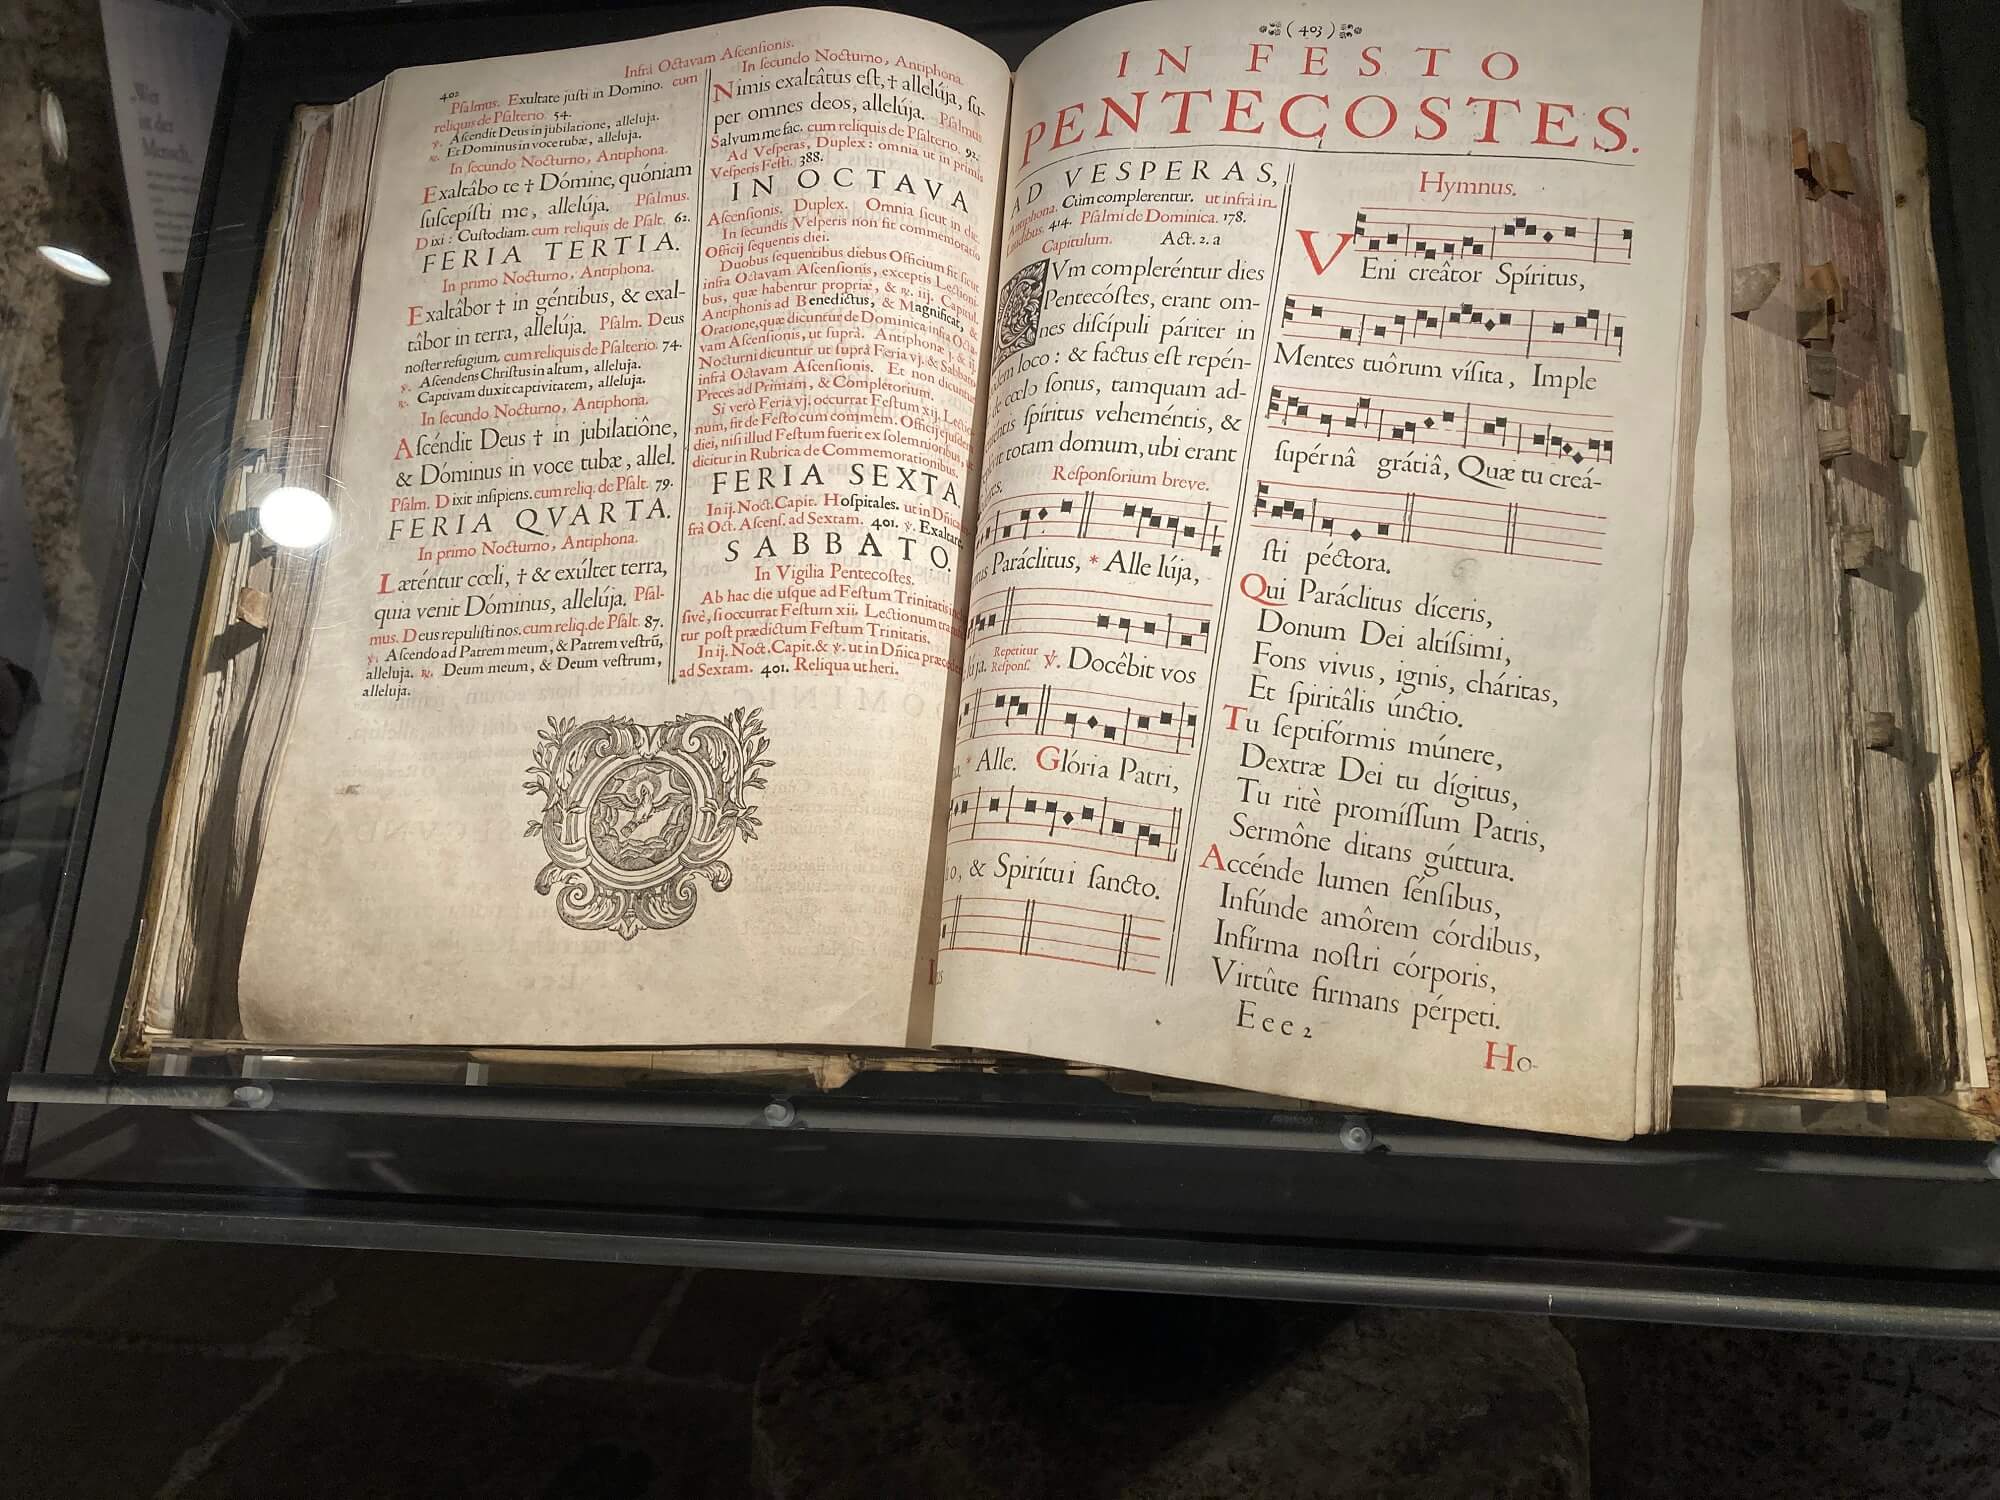 402
Infrà Octavam Ascensionis.
Psalmus. Exultate justi in Domino. cum
reliquis de Psalterio. 54.
℣. Ascendit Deus in jubilatione, alleluja.
℟. Et Dominus in voce tubæ, alleluja.
In secundo Nocturno, Antiphona.
Exaltâbo te † Dómine, quóniam
suscepísti me, allelúja. Psalmus.
Dixi: Custodiam. cum reliquis de Psalt. 62.
FERIA TERTIA.
In primo Nocturno, Antiphona.
Exaltâbor † in géntibus, & exal-
tâbor in terra, allelúja. Psalm. Deus
noster refugium. cum reliquis de Psalterio. 74.
℣. Ascendens Christus in altum, alleluja.
℟. Captivam duxit captivitatem, alleluja.
In secundo Nocturno, Antiphona.
Ascéndit Deus † in jubilatiône,
& Dóminus in voce tubæ, allel.
Psalm. Dixit insipiens. cum reliq. de Psalt. 79.
FERIA QVARTA.
In primo Nocturno, Antiphona.
Læténtur cœli, † & exúltet terra,
quia venit Dóminus, allelúja. Psal-
mus. Deus repulisti nos. cum reliq. de Psalt. 87.
℣. Ascendo ad Patrem meum, & Patrem vestrũ,
alleluja. ℟. Deum meum, & Deum vestrum,
alleluja.
In secundo Nocturno, Antiphona.
Nimis exaltâtus est, † allelúja, su-
per omnes deos, allelúja. Psalmus
Salvum me fac. cum reliquis de Psalterio. 92.
Ad Vesperas, Duplex: omnia ut in primis
Vesperis Festi. 388.
IN OCTAVA
Ascensionis. Duplex. Omnia sicut in die.
In secundis Vesperis non fit commemoratio
Officij sequentis diei.
Duobus sequentibus diebus Officium fit sicut
infra Octavam Ascensionis, exceptis Lectioni-
bus, quæ habentur propriæ, & ℟. iij. Capitul.
Antiphonis ad Benedictus, & Magnificat, &
Oratione, quæ dicuntur de Dominica infra Octa-
vam Ascensionis, ut suprà. Antiphonæ j. & ij.
Nocturni dicuntur ut suprà Feria vj. & Sabbato
infrà Octavam Ascensionis. Et non dicuntur
Preces ad Primam, & Completorium.
Si verò Feria vj. occurrat Festum xij. Lectio-
num, fit de Festo cum commem. Officij ejusdem
diei, nisi illud Festum fuerit ex solemnioribus, ut
dicitur in Rubrica de Commemorationibus.
FERIA SEXTA
In ij. Noct. Capit. Hospitales. ut in Dñica
frà Oct. Ascens. ad Sextam. 401. ℣. Exaltare.
SABBATO.
In Vigilia Pentecostes.
Ab hac die usque ad Festum Trinitatis
sivè, si occurrat Festum xii. Lectionum
tur post prædictum Festum Trinitatis.
In ij. Noct. Capit. & ℣. ut in Dñica
ad Sextam. 401. Reliqua ut heri.
( 403 )
IN FESTO
PENTECOSTES.
AD VESPERAS,
Antiphona. Cùm complerentur. ut infrà in
Laudibus. 414. Psalmi de Dominica. 178.
Capitulum. Act. 2. a
CVm compleréntur dies
Pentecóstes, erant om-
nes discípuli páriter in
dem loco: & factus est repén-
de cœlo sonus, tamquam ad-
spíritus veheméntis, &
totam domum, ubi erant
Responsorium breve.
Paráclitus, * Alle lúja,
Repetitur
Respons. ℣. Docêbit vos
* Alle. Glória Patri,
& Spirítui sancto.
Hymnus.
VEni creâtor Spíritus,
Mentes tuôrum vísita, Imple
supérnâ grátiâ, Quæ tu creá-
sti péctora.
Qui Paráclitus díceris,
Donum Dei altíssimi,
Fons vivus, ignis, cháritas,
Et spiritâlis únctio.
Tu septifórmis múnere,
Dextræ Dei tu dígitus,
Tu ritè promíssum Patris,
Sermône ditans gúttura.
Accénde lumen sénsibus,
Infúnde amôrem córdibus,
Infírma nostri córporis,
Virtûte firmans pérpeti.
Eee 2
Ho-